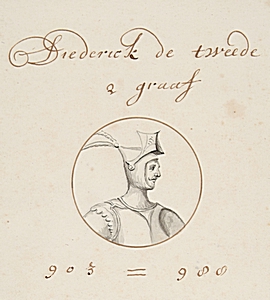 Diederick de tweede
2 graaf
903 = 988